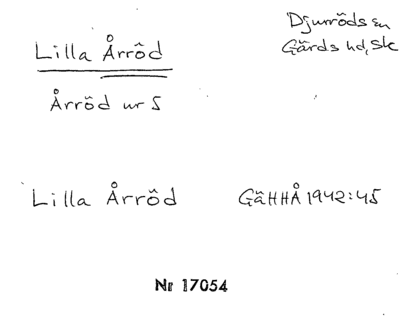 Djurröds sn
Gärds hd, Sk
Lilla Årröd
Årröd nr 5
Lilla Årröd
GäHHÅ 1942:45
Nr 17054